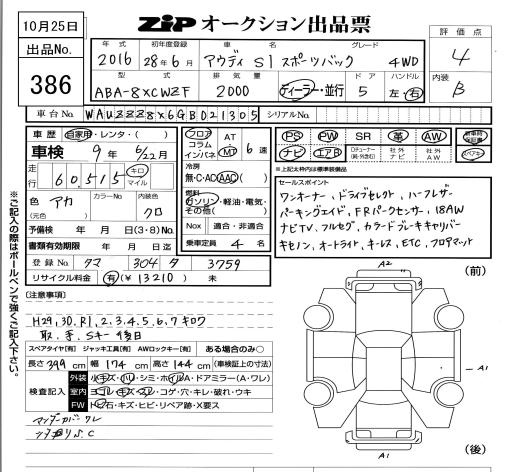 10月25日
出品No.
386
ZIPオークション出品票
評価点
4
内装
B
年式 初年度登録 車名 グレード
2016 28年6月 アウディ S1 スポーツバック 4WD
型式 排気量 ドア ハンドル
ABA-8XCWZF 2000 ディーラー・並行 5 左・右
車台No. WAUZZZ8X6GB021305 シリアルNo.
車歴 自家用・レンタ・( )
車検 9年 6/22月
走行 60,515 キロ マイル
色 アカ
(元色)
カラーNo. 内装色
クロ
予備検 年 月(3・8)No.
書類有効期限 年 月 日迄
登録No. 304 3759
リサイクル料金 有(¥13210) 未
フロア コラム インパネ
AT MT 6速
冷房
無・C・AC(AAC)
燃料
ガソリン・軽油・電気・その他( )
Nox 適合・非適合
乗車定員 4名
PS PW SR 革 AW
ナビ エアB Dチューナー(純・外含む) 社外ナビ 社外AW
※上記太枠内は標準装備品
セールスポイント
ワンオーナー、ドライブセレクト、ハーフレザー
パーキングエイド、FRパークセンサー、18AW
ナビTV、フルセグ、カラードブレーキキャリパー
キセノン、オートライト、キーレス、ETC、フロアマット
※ご記入の際はボールペンで強くご記入下さい。
[注意事項]
H29,30,R1,2,3,4,5,6,7キロク
取、手、Sキー 後日
スペアタイヤ[有] ジャッキ工具[有] AWロックキー[有] ある場合のみ○
長さ399cm 幅174cm 高さ144cm (車検証上の寸法)
検査記入
外装 小キズ・凹・シミ・ホイルA・ドアミラー(A・ワレ)
室内 ヨゴレ・キズ・スレ・コゲ・穴・キレ・破れ・ウキ
FW トビ石・キズ・ヒビ・リペア跡・X要ス
アンダーカバーワレ
(前)
A2
A1
A1
(後)